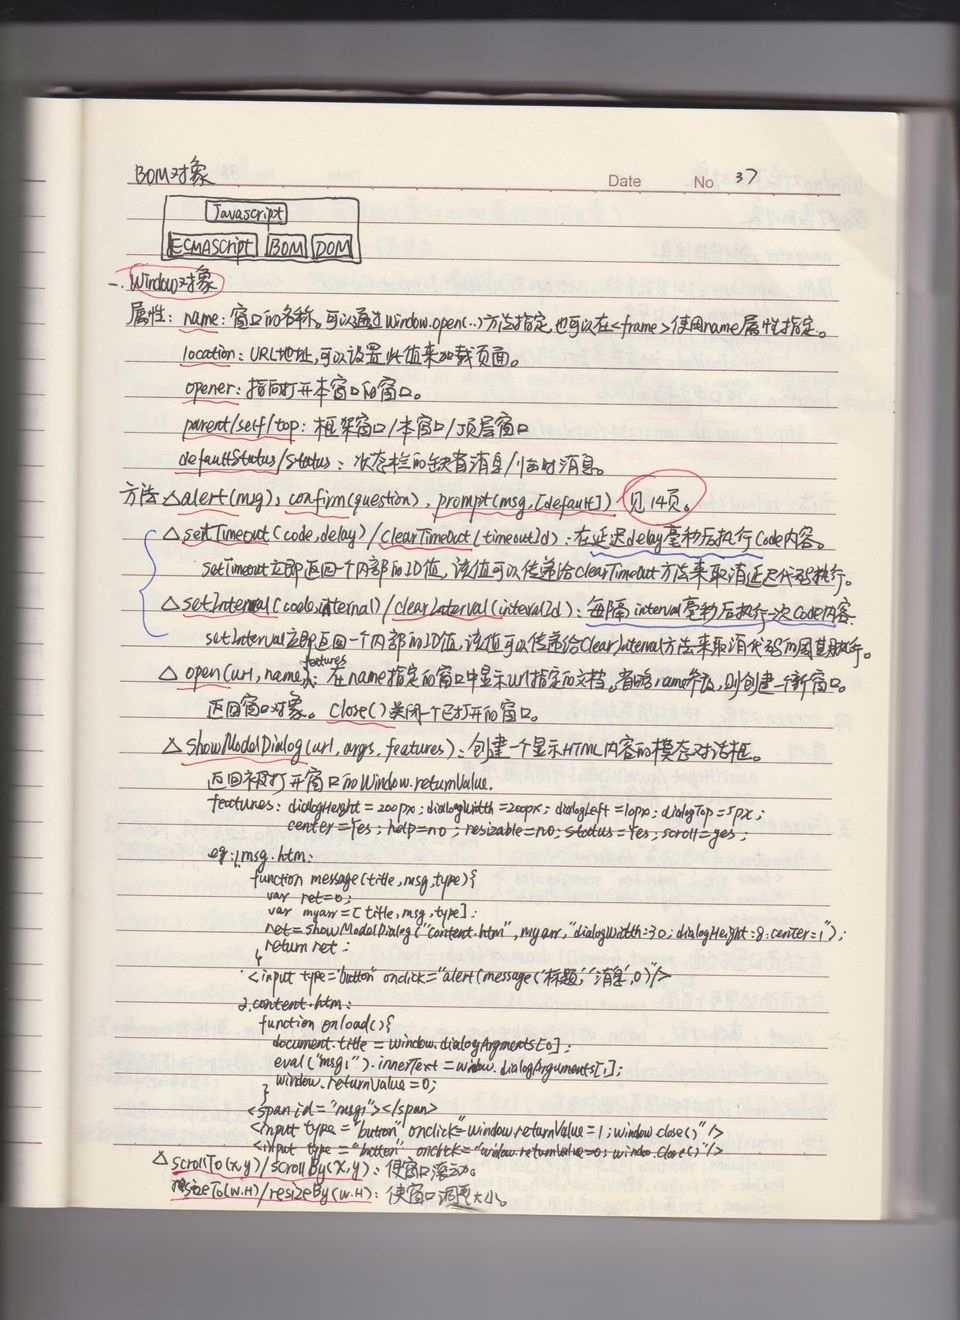 BOM对象
Date No 37
Javascript
ECMAScript BOM DOM
一. Window对象
属性: name: 窗口的名称。可以通过Window.open(..)方法指定,也可以在<frame>使用name属性指定。
location: URL地址,可以设置此值来加载页面。
opener: 指向打开本窗口的窗口。
parent/self/top: 框架窗口/本窗口/顶层窗口
defaultStatus/Status: 状态栏的缺省消息/临时消息。
方法 △alert(msg), confirm(question), prompt(msg,[default]) 见14页。
△ setTimeout(code,delay)/clearTimeout(timeoutId): 在延迟delay毫秒后执行Code内容。
setTimeout立即返回一个内部的ID值, 该值可以传递给clearTimeout方法来取消延迟代码执行。
△ setInterval(code, internal)/clearInterval(intervalId): 每隔interval毫秒后执行一次Code内容.
setInterval立即返回一个内部的ID值,该值可以传递给ClearInterval方法来取消代码的周期执行。
features
△ open(url,name,): 在name指定的窗口中显示url指定的文档。省略name参数,则创建一个新窗口。
返回窗口对象。Close()关闭一个已打开的窗口。
△ showModalDialog(url, args, features): 创建一个显示HTML内容的模态对话框。
返回被打开窗口的Window.returnValue.
features: dialogHeight=200px; dialogWidth=200px; dialogLeft=10px; dialogTop=5px;
center=Yes; help=no; resizable=no; status=Yes; scroll=yes;
eg: 1.msg.htm:
function message(title,msg,type){
var ret=0;
var myarr=[title,msg,type];
ret=showModalDialog("content.htm",myarr,"dialogWidth:30;dialogHeight:8;center=1");
return ret;
}
<input type="button" onclick="alert(message('标题','消息',0)"/>
2.content.htm:
function onload(){
document.title = window.dialogArgments[0];
eval("msg1").innerText=window.dialogArguments[1];
window.returnValue=0;
}
<span id="msg1"></span>
<input type="button" onclick="window.returnValue=1;window.close()"/>
<input type="button" onclick="window.returnValue=0; window.close()"/>
△ scrollTo(x,y)/scrollBy(x,y): 使窗口滚动。
resizeTo(W.H)/resizeBy(W.H): 使窗口调整大小。